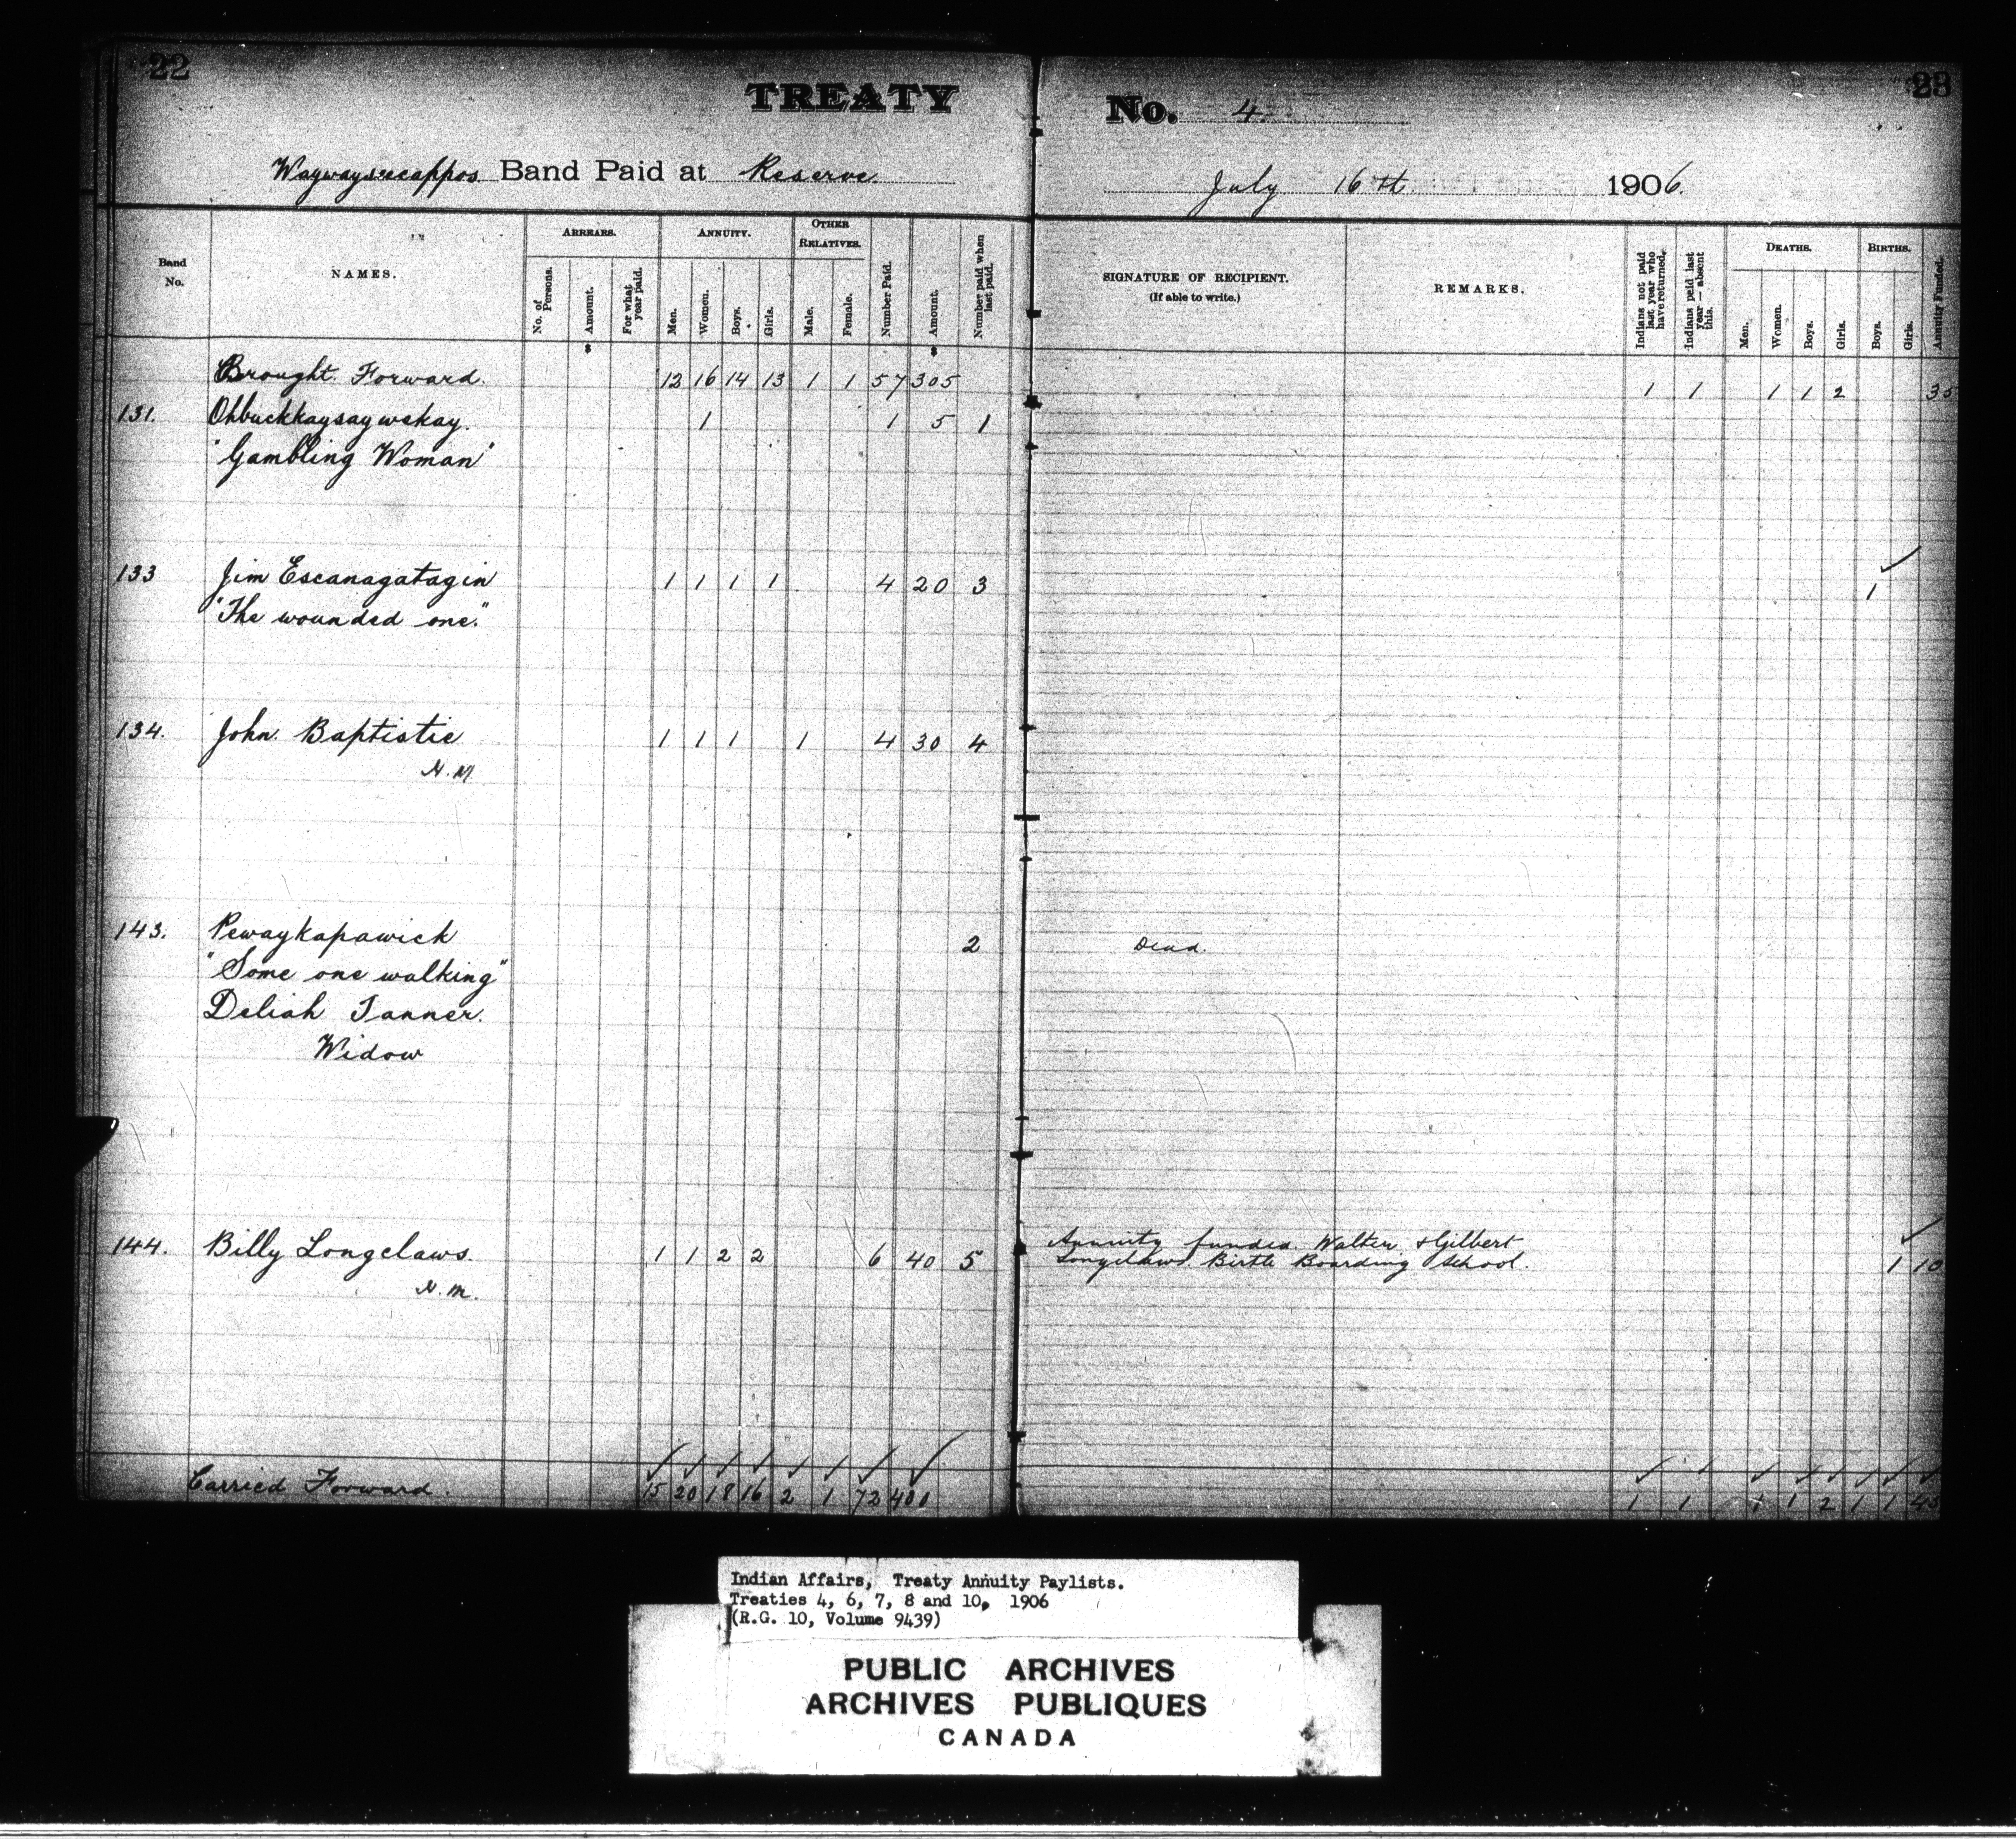 22
23
TREATY No. 4.
Waywayseecappos Band Paid at Reserve
July 16th 1906.
Band No.
NAMES.
ARREARS.
No. of Persons.
Amount.
For what year paid.
ANNUITY.
Men.
Women.
Boys.
Girls.
OTHER RELATIVES.
Male.
Female.
Number Paid.
Amount.
Number paid when last paid.
SIGNATURE OF RECIPIENT.
(If able to write.)
REMARKS.
Indians not paid last year who have returned.
Indians paid last year — absent this.
DEATHS.
Men.
Women.
Boys.
Girls.
BIRTHS.
Boys.
Girls.
Annuity Funded.
$ $
Brought Forward. 12 16 14 13 1 1 57 305 1 1 1 1 2 35
131. Ohbuckkaysaywekay. 1 1 5 1
"Gambling Woman"
133 Jim Escanagatagin 1 1 1 1 4 20 3 1
"The wounded one."
134. John Baptistie 1 1 1 1 4 30 4
N.M
143. Pewaykapawick 2 Dead.
"Some one walking"
Deliah Tanner.
Widow
144. Billy Longclaws. 1 1 2 2 6 40 5 Annuity funded. Walter & Gilbert
Longclaws. Birtle Boarding School. 1 10
N.M.
Carried Forward. 15 20 18 16 2 1 72 400 1 1 1 1 2 1 1 45
Indian Affairs, Treaty Annuity Paylists.
Treaties 4, 6, 7, 8 and 10, 1906
(R.G. 10, Volume 9439)
PUBLIC ARCHIVES
ARCHIVES PUBLIQUES
CANADA